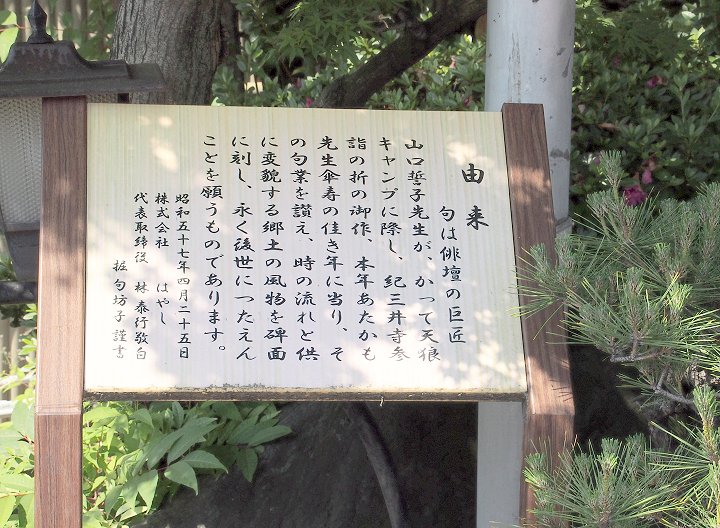 由来
句は俳壇の巨匠
山口誓子先生が、かって天狼
キャンプに際し、紀三井寺参
詣の折の御作、本年あたかも
先生傘寿の佳き年に当り、そ
の句業を讃え、時の流れと供
に変貌する郷土の風物を碑面
に刻し、永く後世につたえん
ことを願うものであります。
昭和五十七年四月二十五日
株式会社 はやし
代表取締役 林泰行敬白
堀句坊子謹書